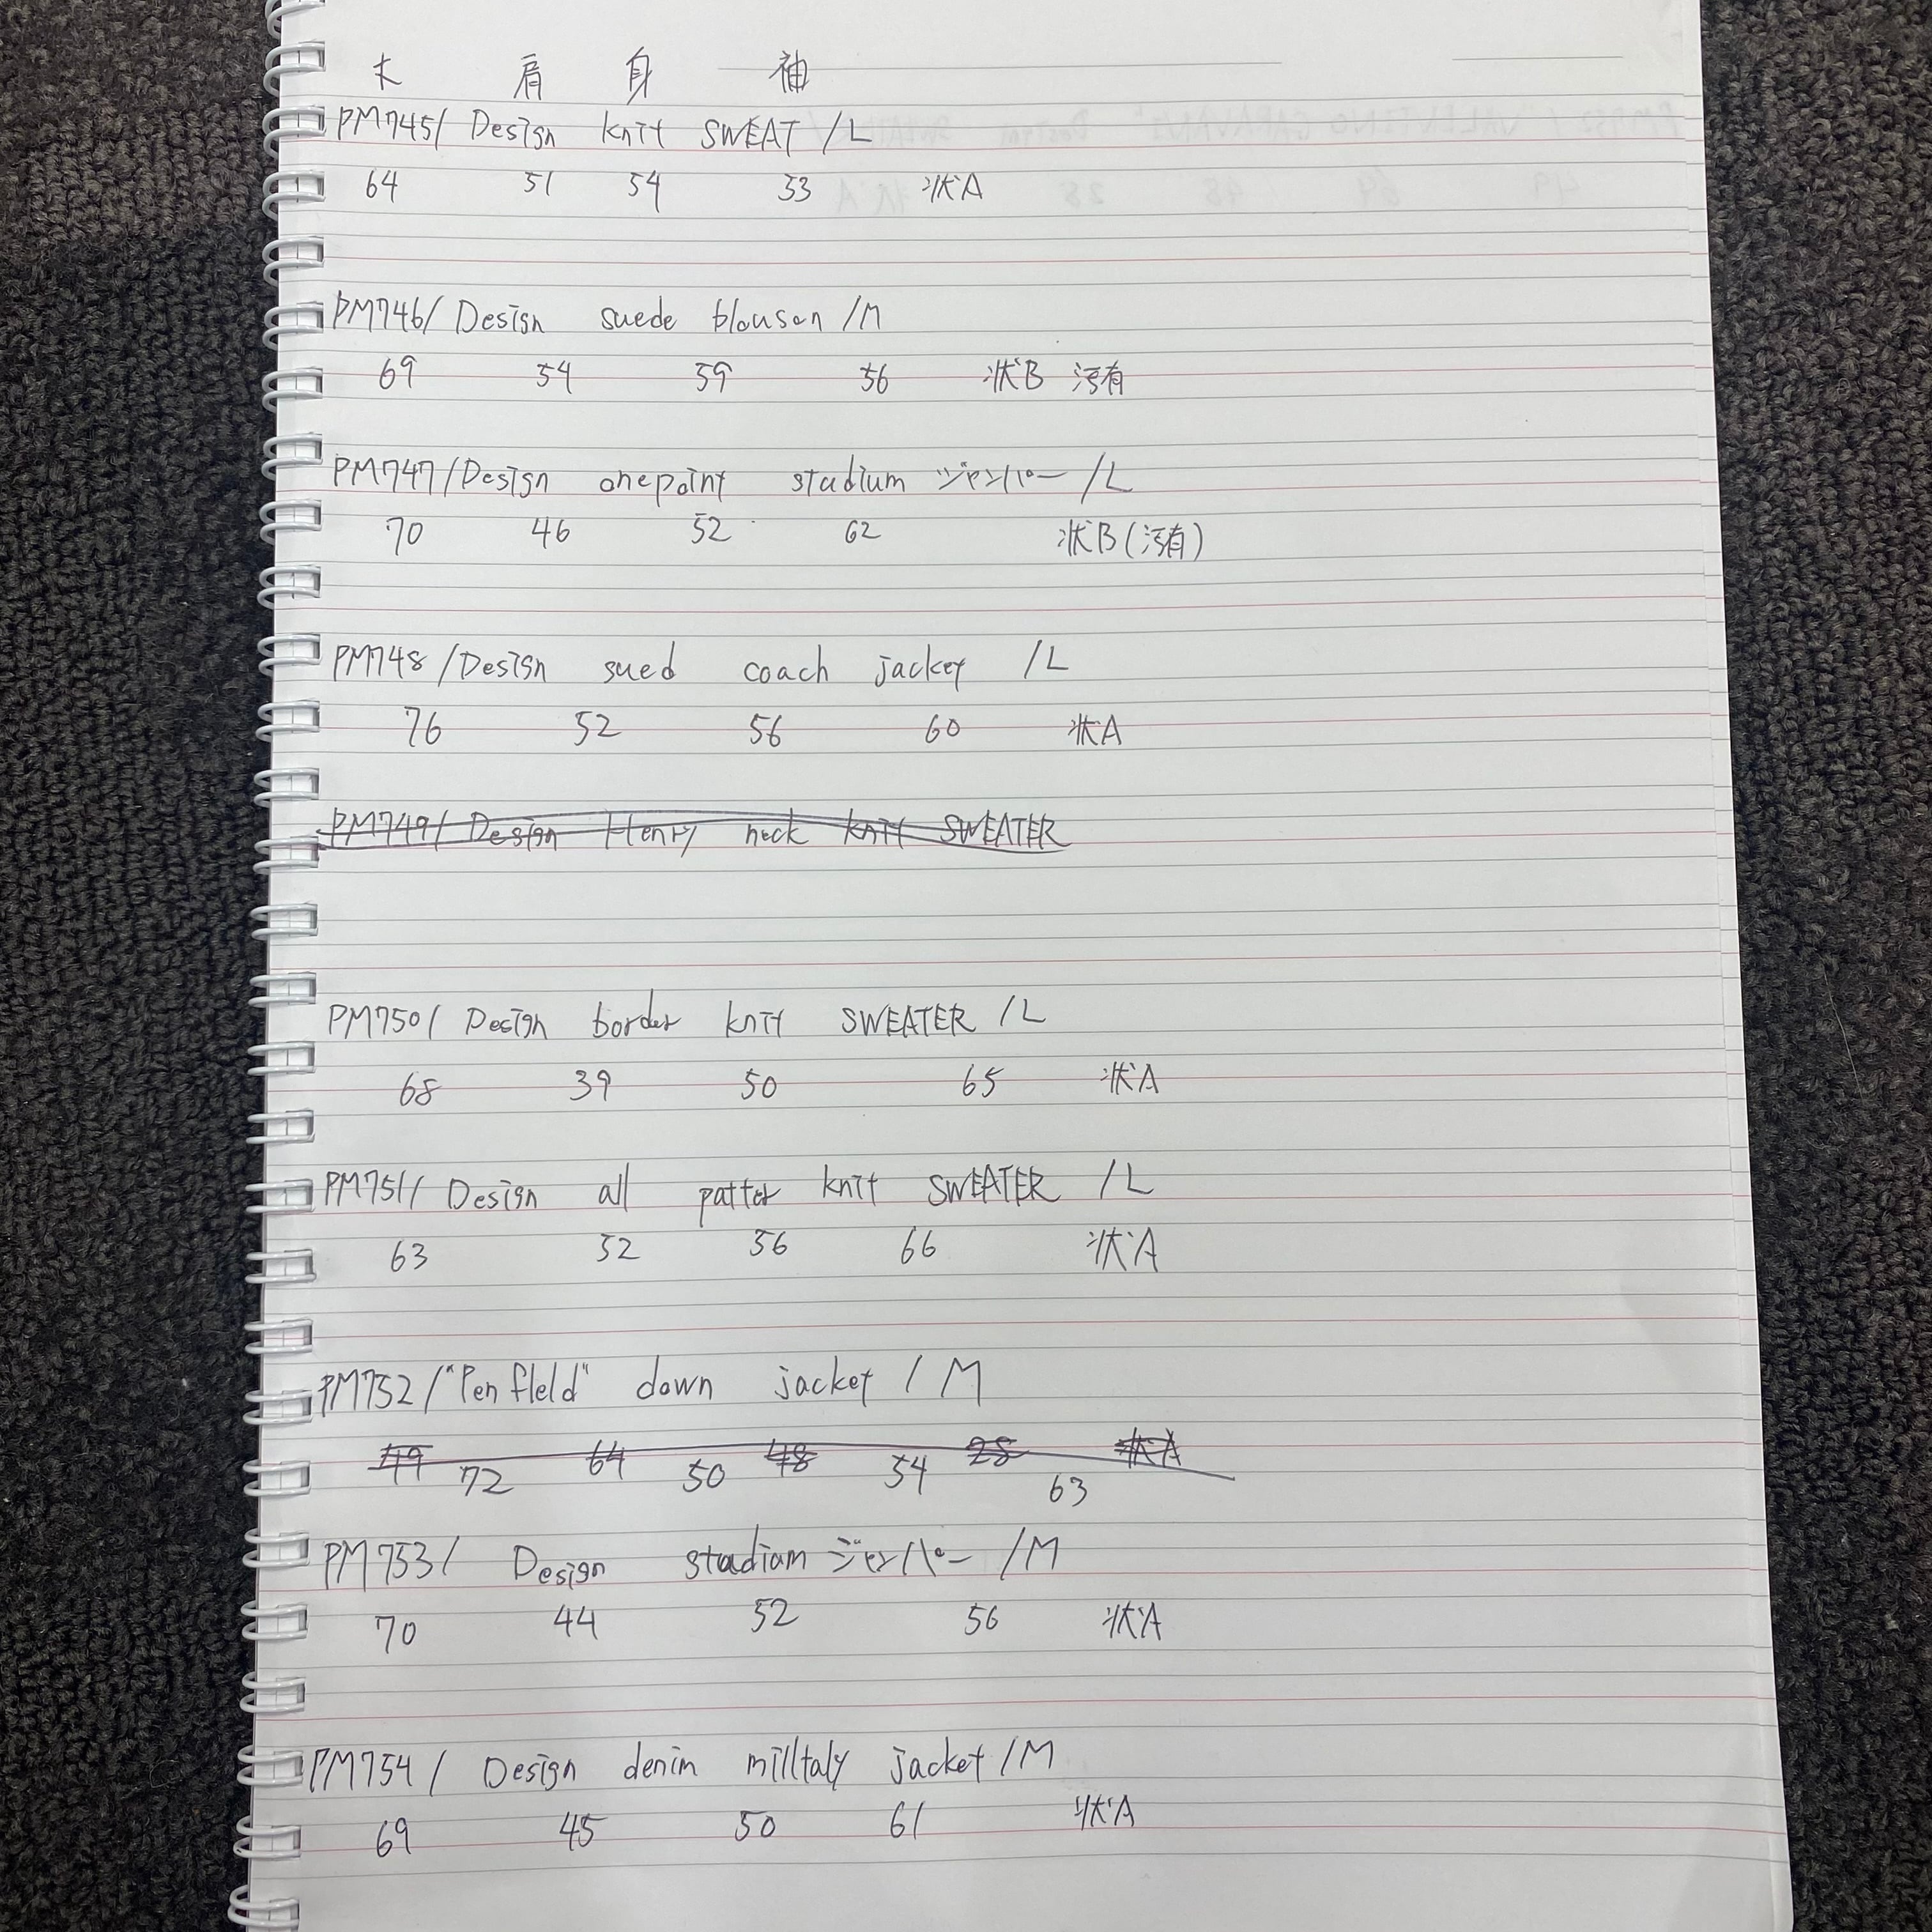 丈 肩 身 袖
PM745/ Design knit SWEAT /L
64 51 54 53 状A
PM746/ Design suede blouson /M
69 54 59 56 状B 汚有
PM747/Design onepoint stadium ジャンパー /L
70 46 52 62 状B(汚有)
PM748 /Design sued coach jacket /L
76 52 56 60 状A
PM749/ Design Henry neck knit SWEATER
PM750/ Design border knit SWEATER /L
68 39 50 65 状A
PM751/ Design all patter knit SWEATER /L
63 52 56 66 状A
PM752/"Penfield" down jacket / M
49 64 48 28 状A
72 50 54 63
PM753/ Design stadium ジャンパー /M
70 44 52 56 状A
PM754/ Design denim milltaly jacket /M
69 45 50 61 状A